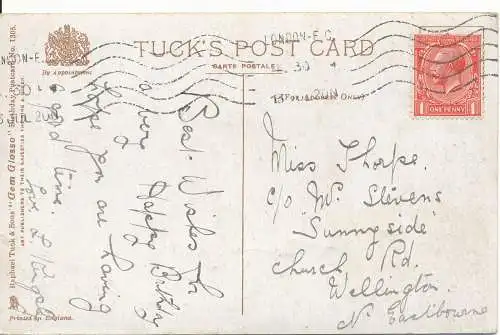 TUCK'S POST CARD
CARTE POSTALE
By Appointment
(For Address Only)
LONDON. E.C.
ONE PENNY
Raphael Tuck & Sons' "Gem Glosso" Birthday Postcard No. 1305.
ART PUBLISHERS TO THEIR MAJESTIES THE KING & QUEEN
Printed in England.
Best Wishes for
a very Happy Birthday
hope you are having
a good time.
love
Miss Thorpe.
c/o Mr Stevens
"Sunnyside"
Church Rd.
Wellington
Nr Eastbourne